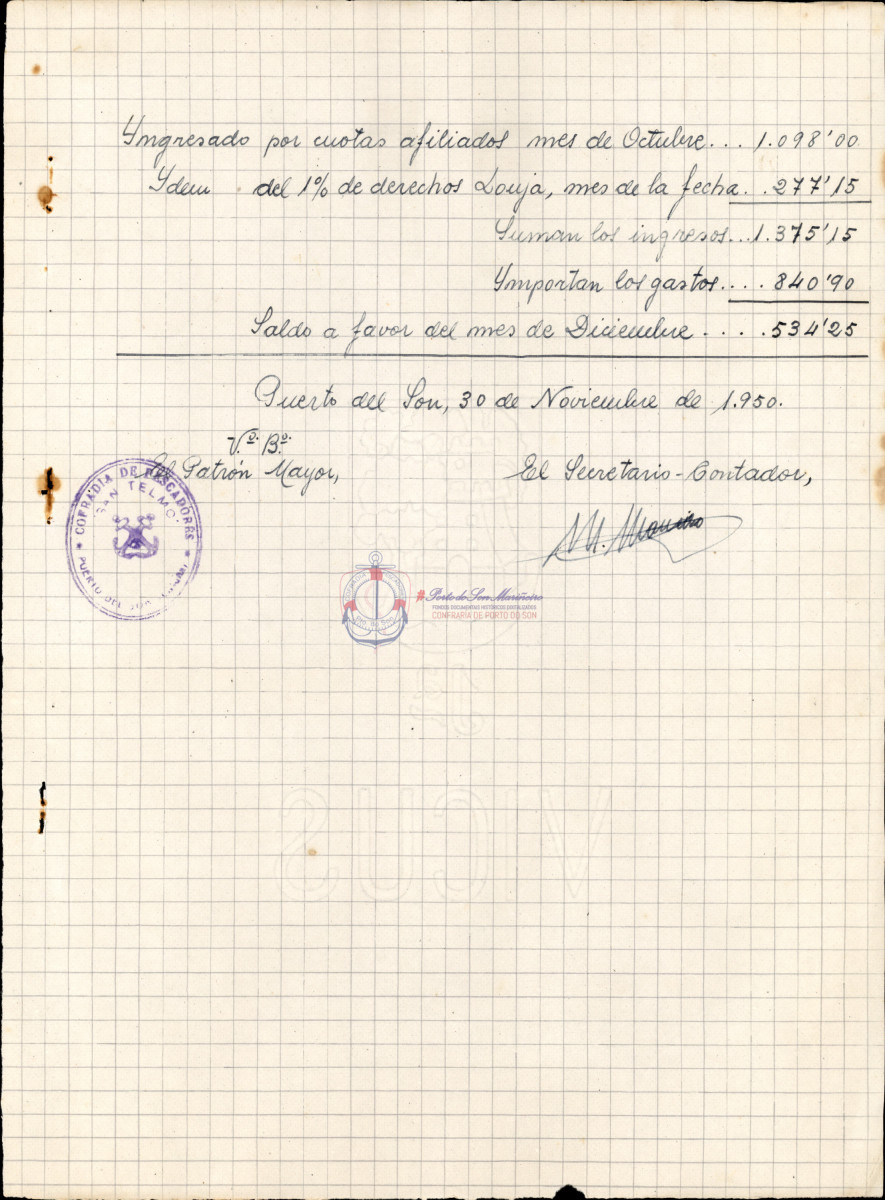 Yngresado por cuotas afiliados mes de Octubre... 1.098'00
Ydem del 1% de derechos Lonja, mes de la fecha... 277'15
Suman los ingresos... 1.375'15
Ymportan los gastos.... 840'90
Saldo a favor del mes de Diciembre..... 534'25
Puerto del Son, 30 de Noviembre de 1.950.
V.º B.º
El Patrón Mayor,
El Secretario-Contador,
COFRADIA DE PESCADORES
SAN TELMO
PUERTO DEL SON
#Porto do Son Mariñeiro
FONDOS DOCUMENTAIS HISTÓRICOS DIXITALIZADOS
CONFRARÍA DE PORTO DO SON
VICUS